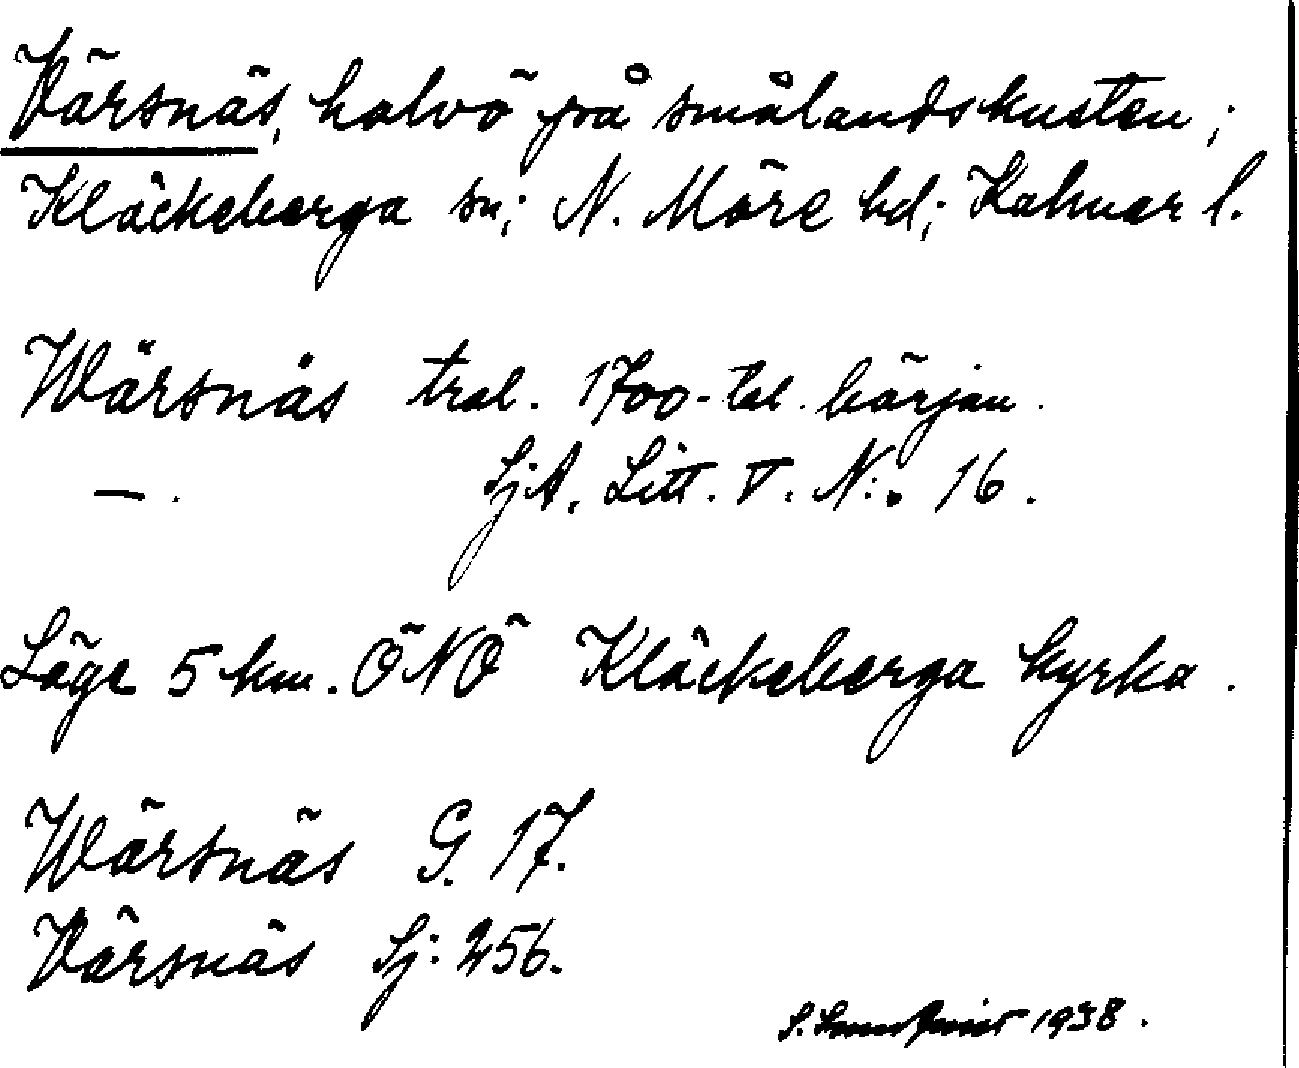 Värsnäs, halvö på smålandskusten;
Kläckeberga sn; N. Möre hd; Kalmar l.
Wärsnäs tral. 1700-tal. början.
—. SjA. Litt. V. N:o 16.
Läge 5 km. ÖNÖ Kläckeberga kyrka.
Wärsnäs G. 17.
Värsnäs Sj: 256.
S. 1938.